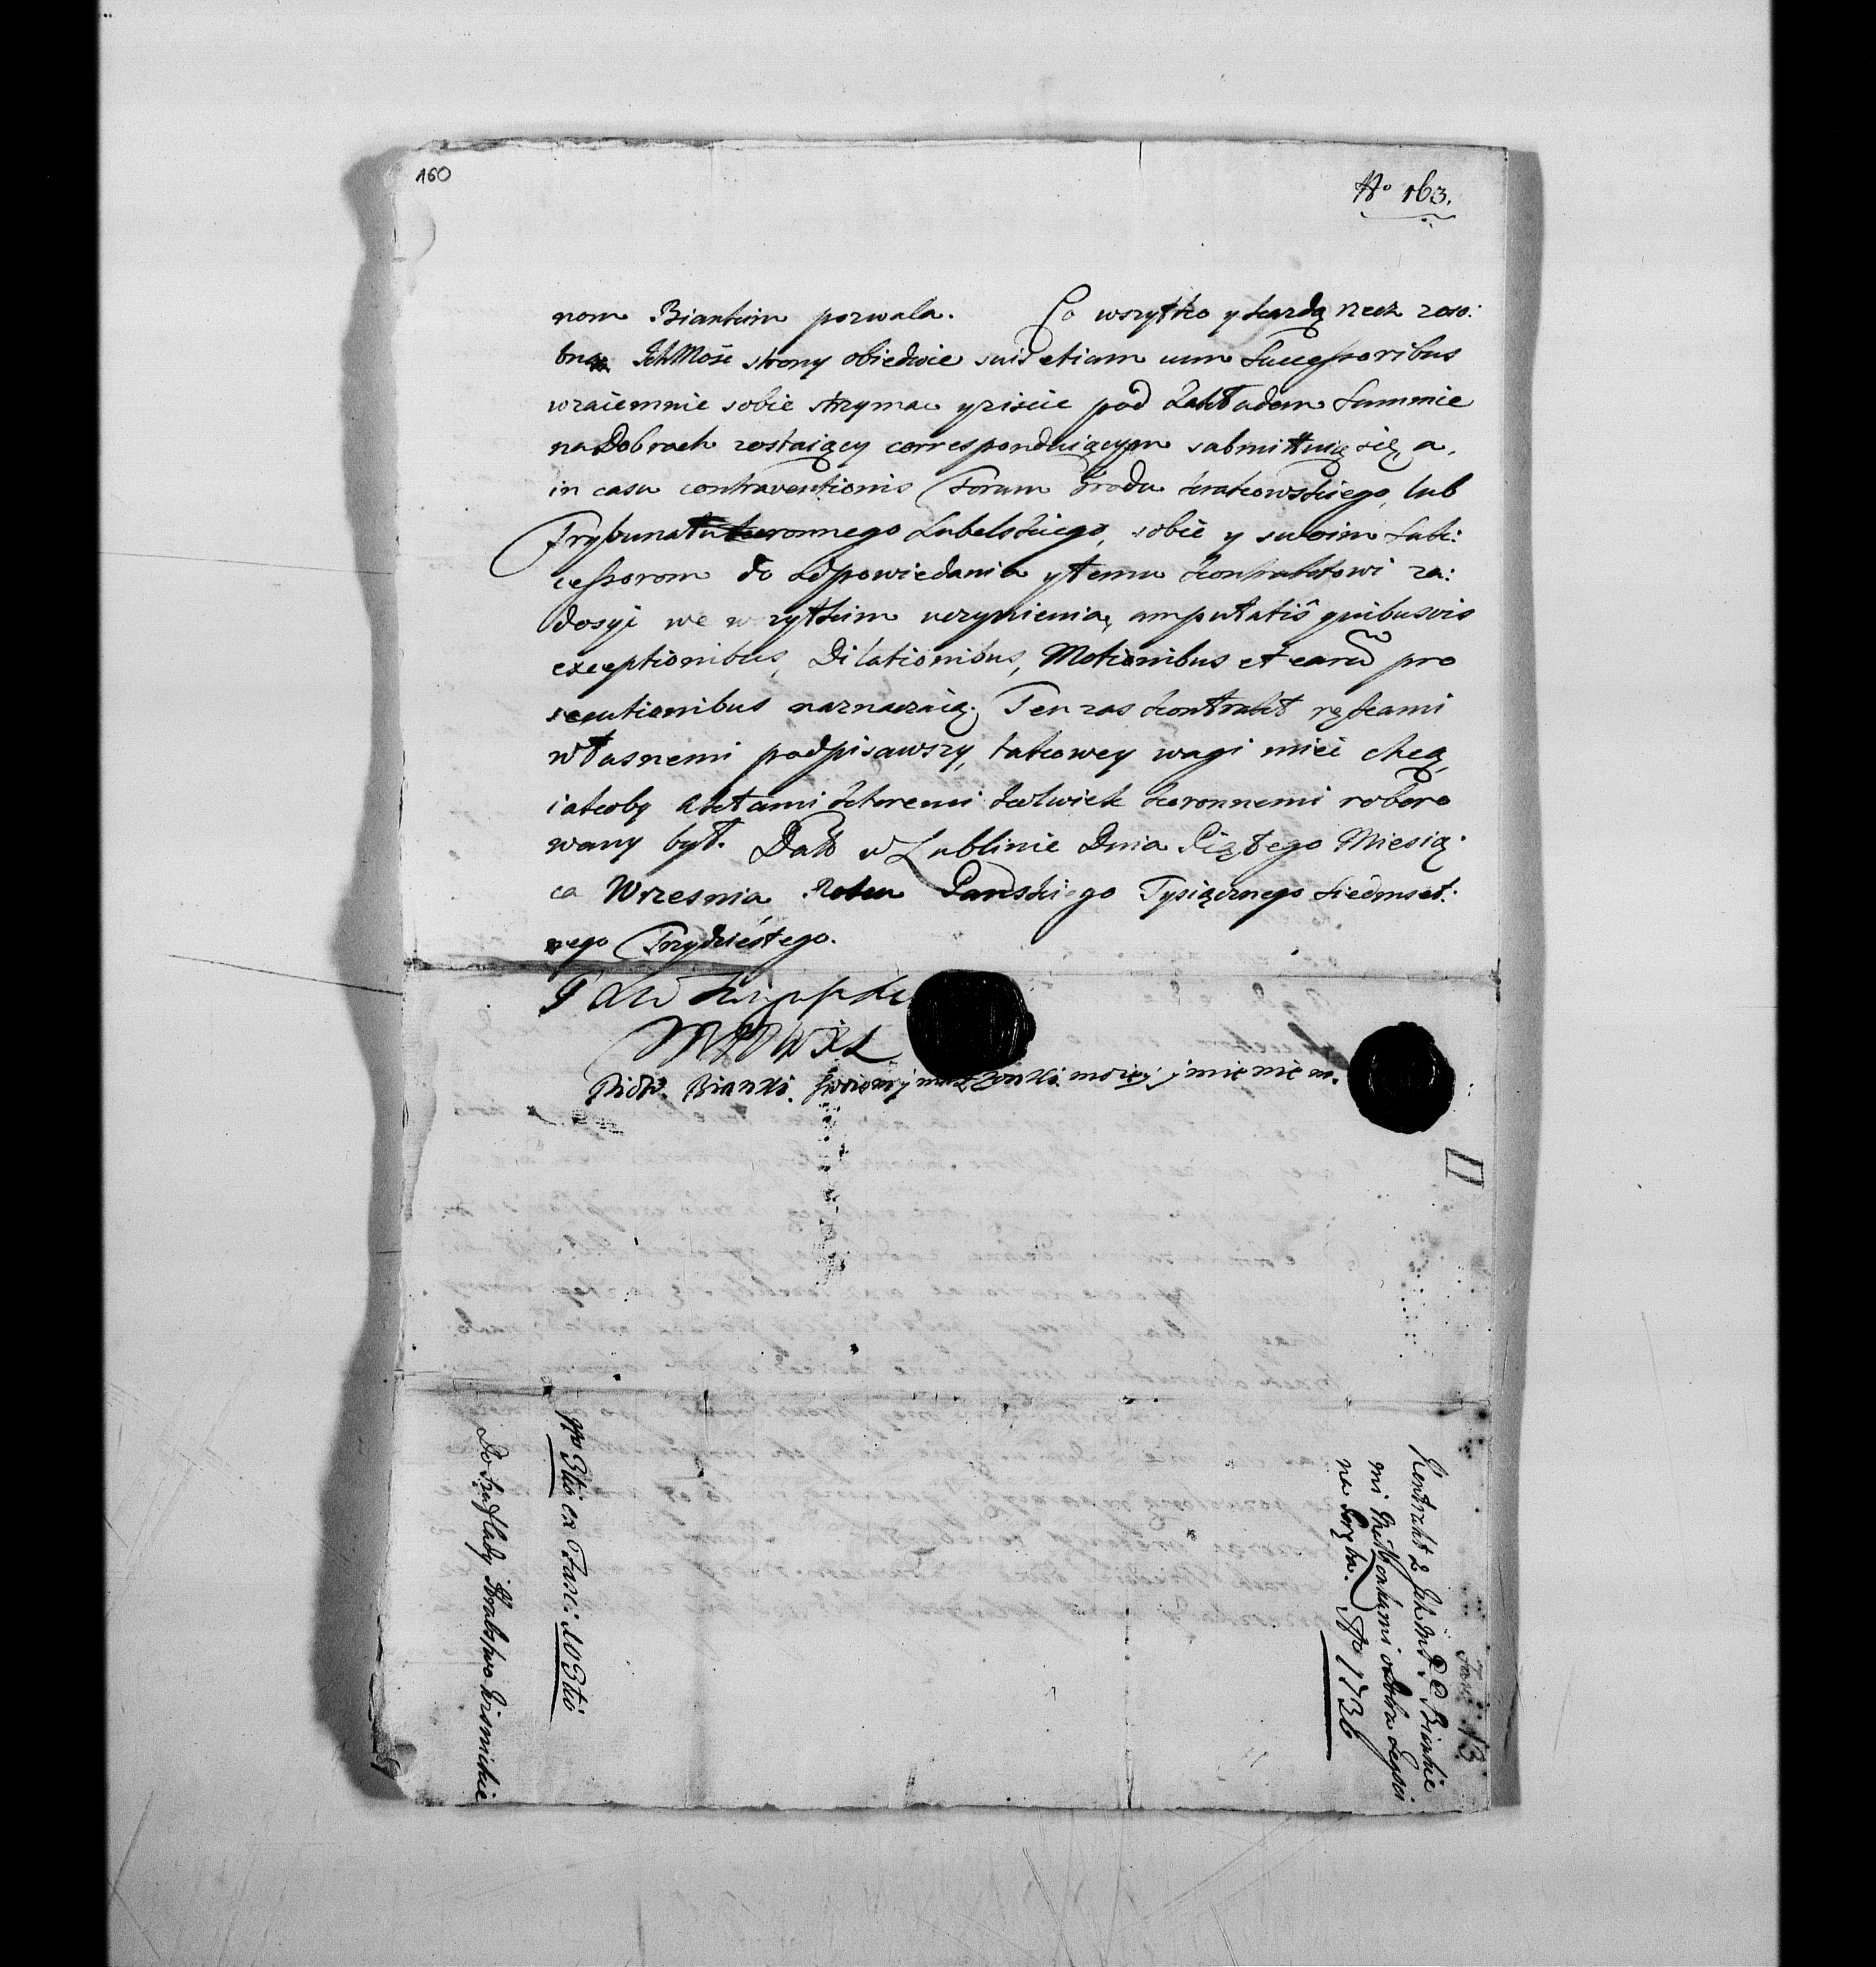 160
No 163.
nom Biankim pozwala. Co wszytko y kazdą rzecz zoso:
bna IchMość strony obiedwie suis etiam cum Successoribus
wzaiemnie sobie strzymac y ziscic pod Zakładem Summie
na Dobrach zostaiący correspondуiącym submittuią się, a,
in casu contraventionis Forum Grodu krakowskiego, lub
Trybunału koronnego Lubelskiego, sobie y swoim Suk:
cessorom do odpowiedania y temu kontraktowi za:
dosyć we wszytkim uczynienia, amputatis quibusvis
exceptionibus, Dilationibus, Motionibus et earū pro
secutionibus naznaczaią. Ten zas kontrakt rękami
własnemi podpisawszy, takowey wagi mieć chcą,
iakoby Aktami ktoremi kolwiek koronnemi roboro
wany był. Datt w Lublinie Dnia Piątego Miesią
ca Wrzesnia, Roku Panskiego Tysiącznego Siedmset:
nego Trzydziéstego.
Piotr. Bianki. swoim y żonki moiey imieniem.
ppo 3tio ex Fasc: 103tio
Do Szuflady Hrabstwo Wisnickie
Fasc: 13
Kontrakt z IchMć P P Biankie
mi Małżonkami o Dobra Łęgoi
na Poręba. Ao 1736